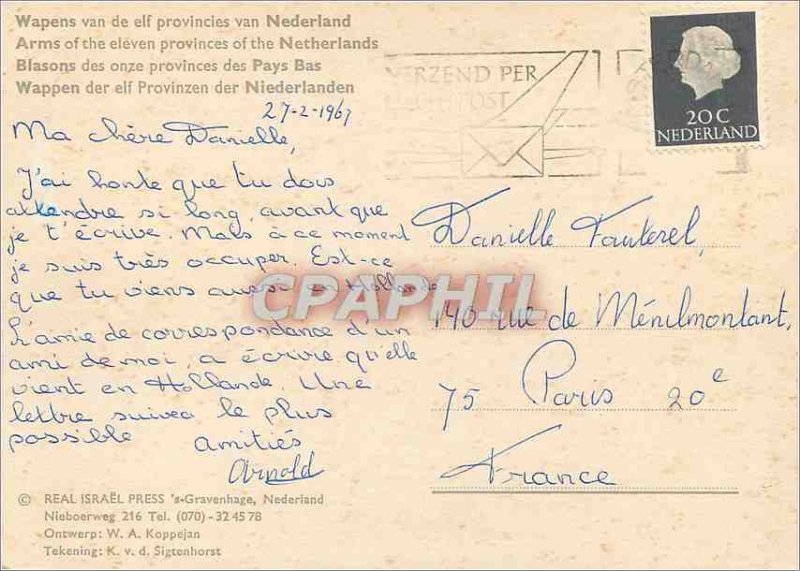 Wapens van de elf provincies van Nederland
Arms of the eleven provinces of the Netherlands
Blasons des onze provinces des Pays Bas
Wappen der elf Provinzen der Niederlanden
VERZEND PER
POST
20 C
NEDERLAND
27-2-1967
Ma chère Danielle,
J'ai honte que tu dois
attendre si long, avant que
je t'écrive. Mais à ce moment
je suis très occuper. Est-ce
que tu viens aussi en Hollande
L'amie de correspondance d'un
ami de moi, a écrire qu'elle
vient en Hollande. Une
lettre suivea le plus
possible amitiés
Arnold
Danielle Fauterel,
140 rue de Ménilmontant,
75 Paris 20e
France
CPAPHIL
© REAL ISRAËL PRESS 's-Gravenhage, Nederland
Nieboerweg 216 Tel. (070) - 32 45 78
Ontwerp: W. A. Koppejan
Tekening: K. v. d. Sigtenhorst